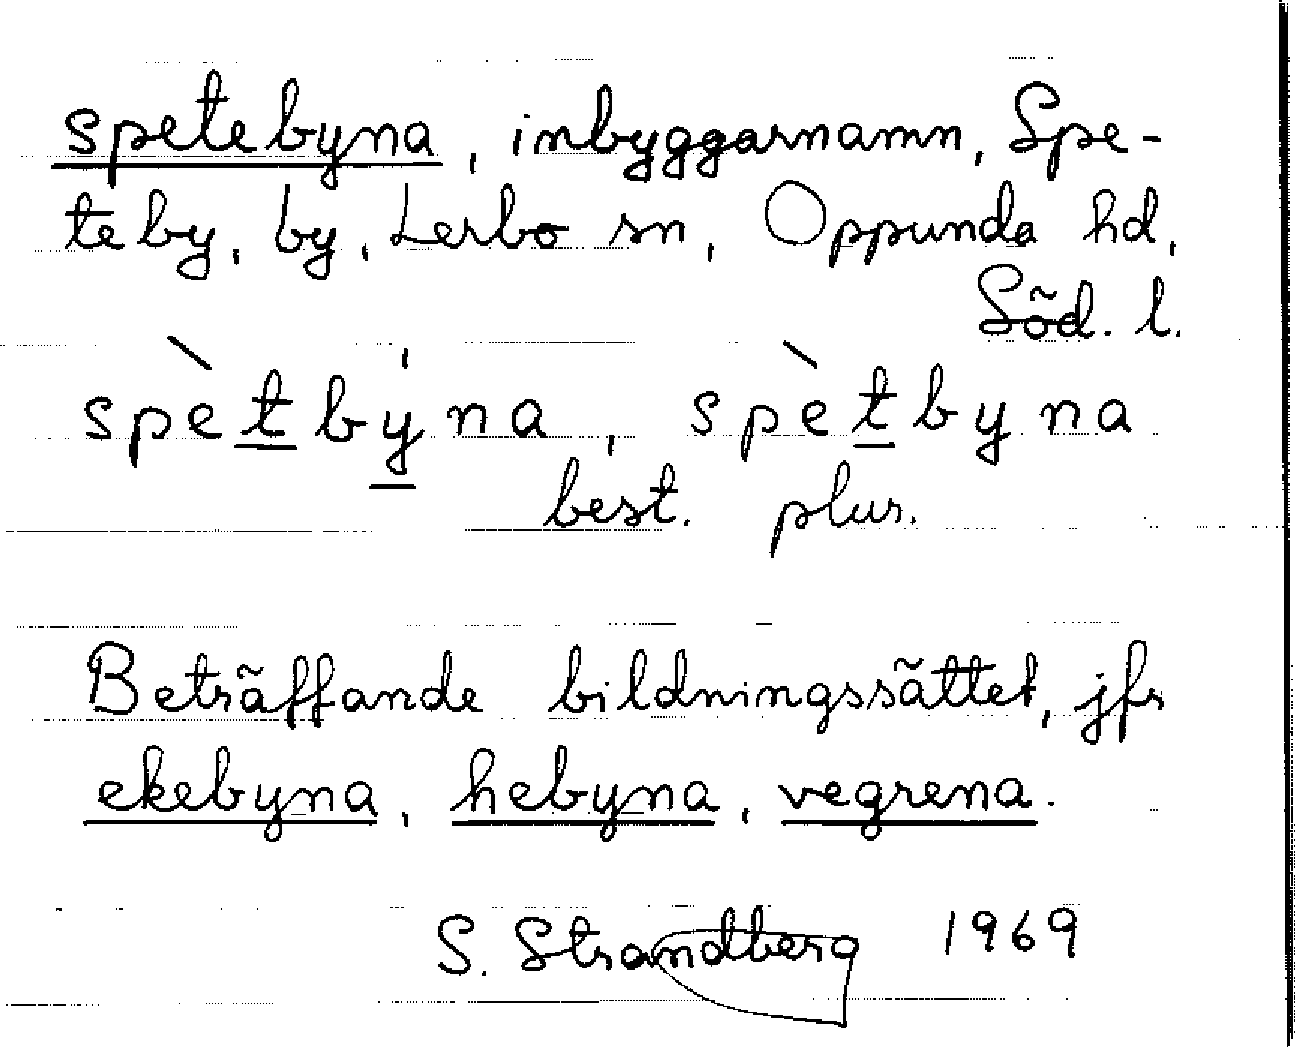 spetebyna, inbyggarnamn, Spe-
teby, by, Lerbo sn, Oppunda hd,
Söd. l.
spètbýna, spètbyna
best. plur.
Beträffande bildningssättet, jfr
ekebyna, hebyna, vegrena.
S. Strandberg 1969